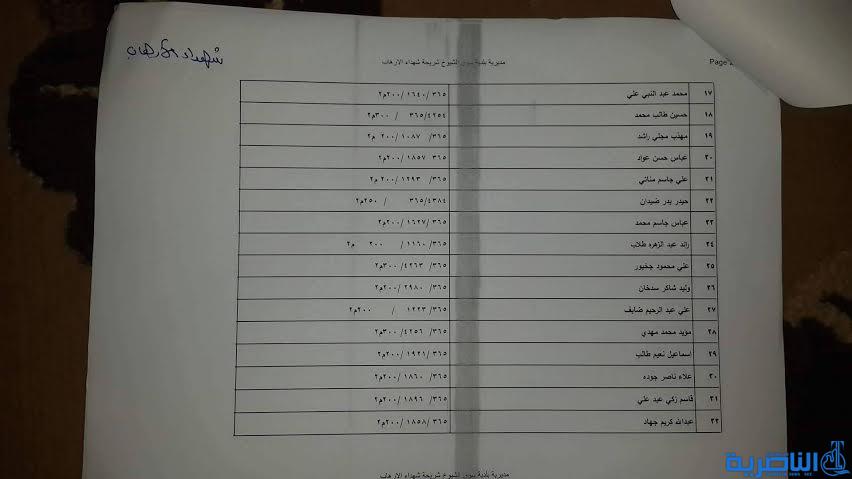 شهداء الارهاب
مديرية بلدية سوق الشيوخ شريحة شهداء الارهاب
Page 2
١٧ محمد عبد النبي علي ٣٦٥/ ١٦٤٠ /٢٠٠م٢
١٨ حسين طالب محمد ٣٦٥/٤٢٥٤ / ٣٠٠م٢
١٩ مهذب مجلي راشد ٣٦٥/ ١٠٨٧ /٢٠٠ م٢
٢٠ عباس حسن عواد ٣٦٥/ ١٨٥٧ /٢٠٠م٢
٢١ علي جاسم مناتي ٣٦٥/ ١٢٩٣ /٢٠٠ م٢
٢٢ حيدر بدر ضيدان ٣٦٥/٤٣٨٤ / ٢٥٠م٢
٢٣ عباس جاسم محمد ٣٦٥/ ١٦٢٧ /٢٠٠م٢
٢٤ رائد عبد الزهره طلاب ٣٦٥/ ١١٦٠ / ٢٠٠ م٢
٢٥ علي محمود جخيور ٣٦٥/ ٤٢٦٣ /٣٠٠م٢
٢٦ وليد شاكر سدخان ٣٦٥/ ٢٩٨٠ /٢٠٠م٢
٢٧ علي عبد الرحيم ضايف ٣٦٥/ ١٢٢٣ / ٢٠٠م٢
٢٨ مؤيد محمد مهدي ٣٦٥/ ٤٢٥٦ /٣٠٠م٢
٢٩ اسماعيل نعيم طالب ٣٦٥/ ١٩٢١ /٢٠٠م٢
٣٠ علاء ناصر جوده ٣٦٥/ ١٨٦٠ /٢٠٠م٢
٣١ قاسم زكي عبد علي ٣٦٥/ ١٨٩٦ /٢٠٠م٢
٣٢ عبدالله كريم جهاد ٣٦٥/ ١٨٥٨ /٢٠٠م٢
مديرية بلدية سوق الشيوخ شريحة شهداء الارهاب
الناصرية